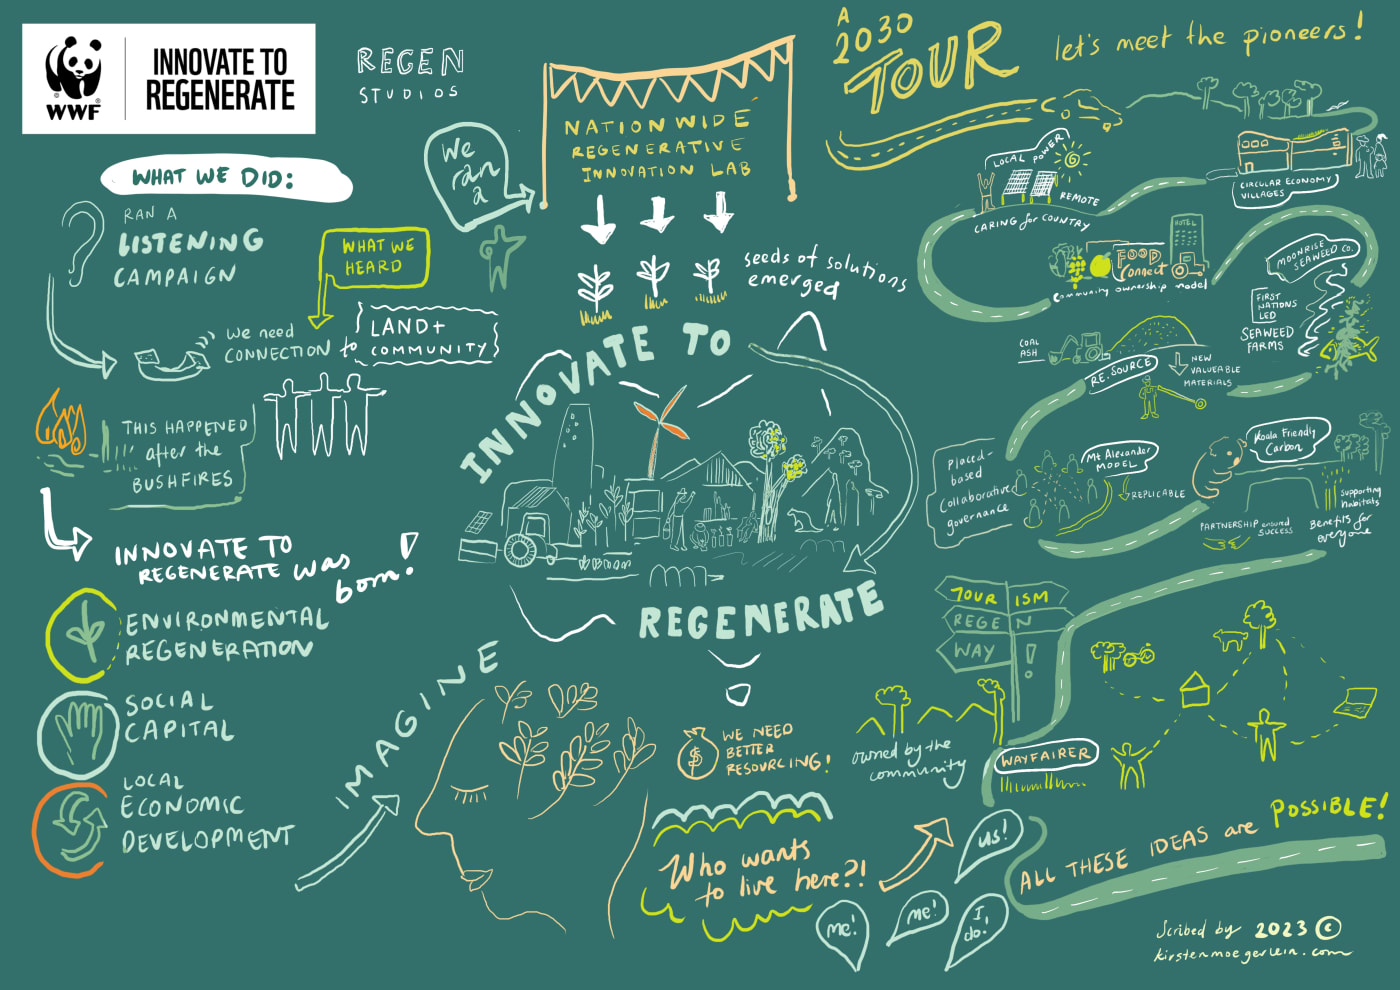 WWF
INNOVATE TO
REGENERATE
REGEN
STUDIOS
WHAT WE DID:
RAN A
LISTENING
CAMPAIGN
WHAT WE
HEARD
we need
CONNECTION to
LAND+
COMMUNITY
THIS HAPPENED
after the
BUSHFIRES
INNOVATE TO
REGENERATE was
born!
ENVIRONMENTAL
REGENERATION
SOCIAL
CAPITAL
LOCAL
ECONOMIC
DEVELOPMENT
We
ran
a
NATIONWIDE
REGENERATIVE
INNOVATION LAB
seeds of solutions
emerged
INNOVATE TO
REGENERATE
IMAGINE
$
WE NEED
BETTER
RESOURCING!
Who wants
to live here?!
me!
me!
I
do!
us!
A
2030
TOUR
let's meet the pioneers!
LOCAL POWER
REMOTE
CARING for COUNTRY
CIRCULAR ECONOMY
VILLAGES
HOTEL
FOOD
Connect
community ownership model
MOONRISE
SEAWEED Co.
FIRST
NATIONS
LED
SEAWEED
FARMS
COAL
ASH
RE.SOURCE
NEW
VALUEABLE
MATERIALS
Placed-
based
Collaborative
governance
Mt Alexander
MODEL
REPLICABLE
Koala Friendly
Carbon
PARTNERSHIP ensured
SUCCESS
supporting
habitats
Benefits for
everyone
TOURISM
REGEN
WAY!
owned by the
community
WAYFAIRER
ALL THESE IDEAS are POSSIBLE!
Scribed by 2023 ©
kirstenmoegerlein.com